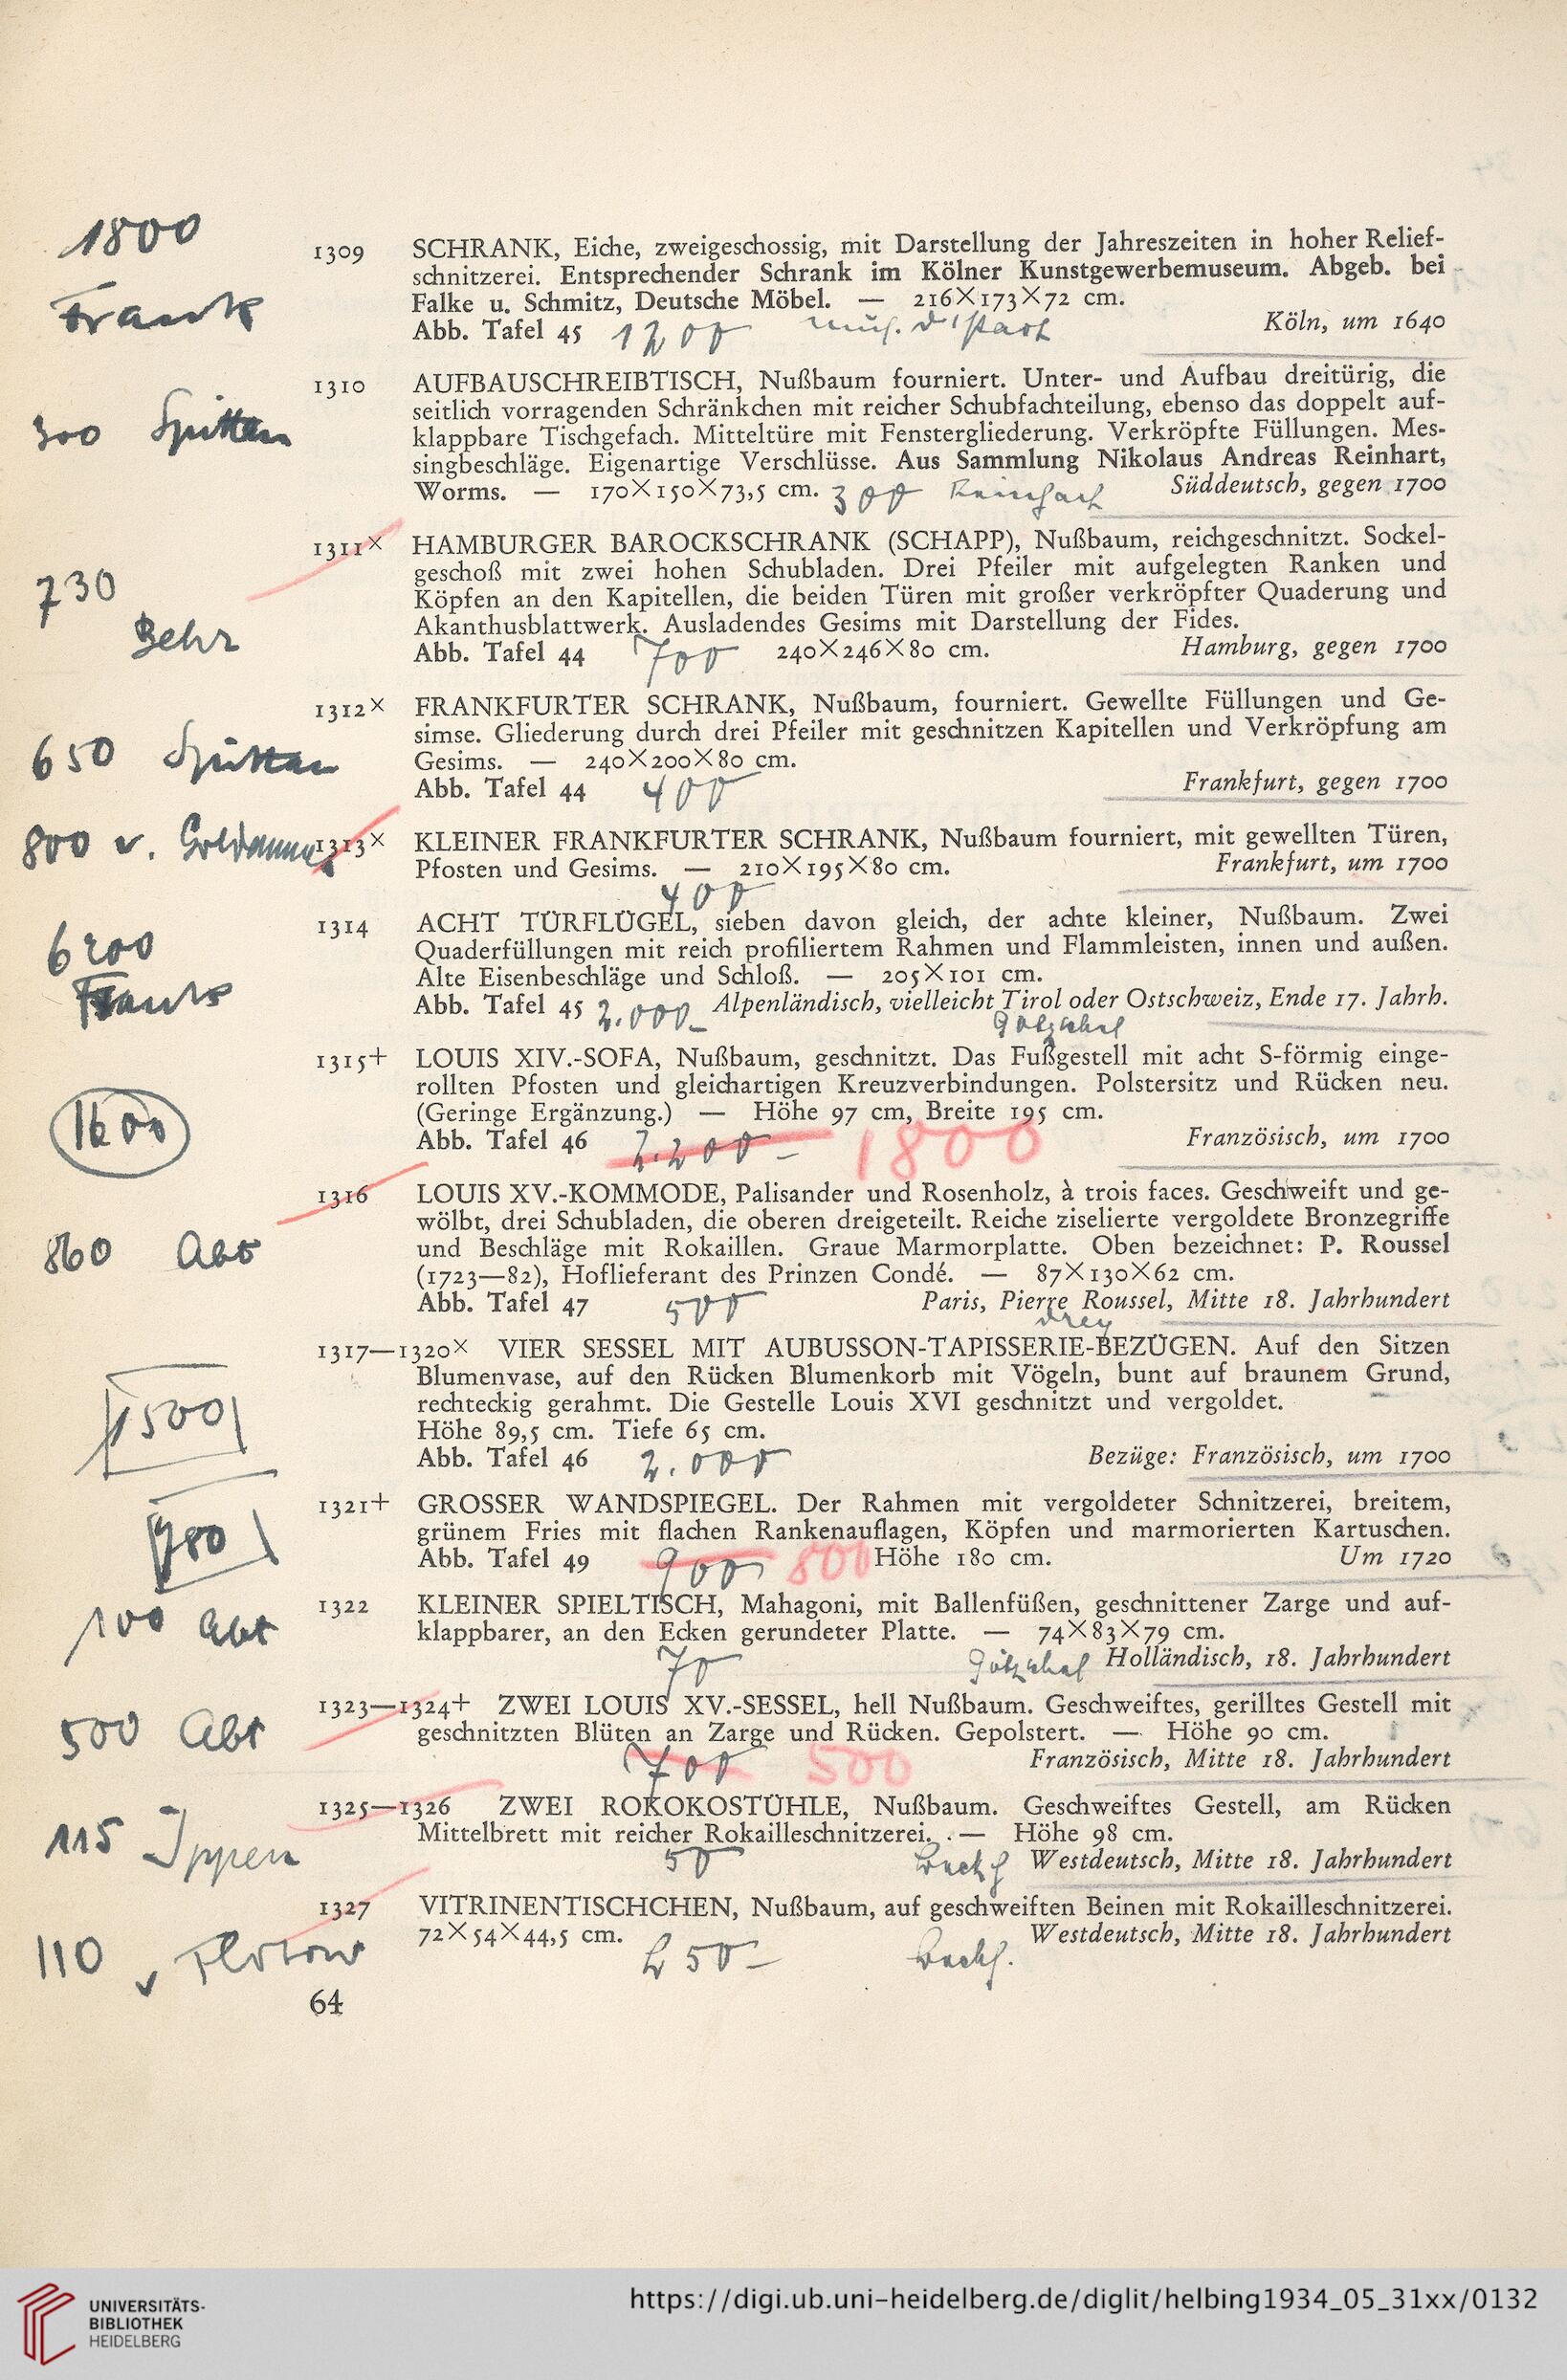 1800
Frank
1309 SCHRANK, Eiche, zweigeschossig, mit Darstellung der Jahreszeiten in hoher Relief-
schnitzerei. Entsprechender Schrank im Kölner Kunstgewerbemuseum. Abgeb. bei
Falke u. Schmitz, Deutsche Möbel. — 216×173×72 cm.
Abb. Tafel 45 1200 Köln, um 1640
300
1310 AUFBAUSCHREIBTISCH, Nußbaum fourniert. Unter- und Aufbau dreitürig, die
seitlich vorragenden Schränkchen mit reicher Schubfachteilung, ebenso das doppelt auf-
klappbare Tischgefach. Mitteltüre mit Fenstergliederung. Verkröpfte Füllungen. Mes-
singbeschläge. Eigenartige Verschlüsse. Aus Sammlung Nikolaus Andreas Reinhart,
Worms. — 170×150×73,5 cm. 300 Reinhart Süddeutsch, gegen 1700
730
Behr
1311× HAMBURGER BAROCKSCHRANK (SCHAPP), Nußbaum, reichgeschnitzt. Sockel-
geschoß mit zwei hohen Schubladen. Drei Pfeiler mit aufgelegten Ranken und
Köpfen an den Kapitellen, die beiden Türen mit großer verkröpfter Quaderung und
Akanthusblattwerk. Ausladendes Gesims mit Darstellung der Fides.
Abb. Tafel 44 700 240×246×80 cm. Hamburg, gegen 1700
650
1312× FRANKFURTER SCHRANK, Nußbaum, fourniert. Gewellte Füllungen und Ge-
simse. Gliederung durch drei Pfeiler mit geschnitzen Kapitellen und Verkröpfung am
Gesims. — 240×200×80 cm.
Abb. Tafel 44 400 Frankfurt, gegen 1700
800 v.
1313× KLEINER FRANKFURTER SCHRANK, Nußbaum fourniert, mit gewellten Türen,
Pfosten und Gesims. — 210×195×80 cm. Frankfurt, um 1700
400
6200
Frank
1314 ACHT TÜRFLÜGEL, sieben davon gleich, der achte kleiner, Nußbaum. Zwei
Quaderfüllungen mit reich profiliertem Rahmen und Flammleisten, innen und außen.
Alte Eisenbeschläge und Schloß. — 205×101 cm.
Abb. Tafel 45 2.000 Alpenländisch, vielleicht Tirol oder Ostschweiz, Ende 17. Jahrh.
1600
1315+ LOUIS XIV.-SOFA, Nußbaum, geschnitzt. Das Fußgestell mit acht S-förmig einge-
rollten Pfosten und gleichartigen Kreuzverbindungen. Polstersitz und Rücken neu.
(Geringe Ergänzung.) — Höhe 97 cm, Breite 195 cm.
Abb. Tafel 46 2.200- 1800 Französisch, um 1700
860 Abt
1316 LOUIS XV.-KOMMODE, Palisander und Rosenholz, à trois faces. Geschweift und ge-
wölbt, drei Schubladen, die oberen dreigeteilt. Reiche ziselierte vergoldete Bronzegriffe
und Beschläge mit Rokaillen. Graue Marmorplatte. Oben bezeichnet: P. Roussel
(1723—82), Hoflieferant des Prinzen Condé. — 87×130×62 cm.
Abb. Tafel 47 500 Paris, Pierre Roussel, Mitte 18. Jahrhundert
1500
1317—1320× VIER SESSEL MIT AUBUSSON-TAPISSERIE-BEZÜGEN. Auf den Sitzen
Blumenvase, auf den Rücken Blumenkorb mit Vögeln, bunt auf braunem Grund,
rechteckig gerahmt. Die Gestelle Louis XVI geschnitzt und vergoldet.
Höhe 89,5 cm. Tiefe 65 cm.
Abb. Tafel 46 2.000 Bezüge: Französisch, um 1700
780
1321+ GROSSER WANDSPIEGEL. Der Rahmen mit vergoldeter Schnitzerei, breitem,
grünem Fries mit flachen Rankenauflagen, Köpfen und marmorierten Kartuschen.
Abb. Tafel 49 900 800 Höhe 180 cm. Um 1720
100 Abt
1322 KLEINER SPIELTISCH, Mahagoni, mit Ballenfüßen, geschnittener Zarge und auf-
klappbarer, an den Ecken gerundeter Platte. — 74×83×79 cm.
70 Holländisch, 18. Jahrhundert
500 Abt
1323—1324+ ZWEI LOUIS XV.-SESSEL, hell Nußbaum. Geschweiftes, gerilltes Gestell mit
geschnitzten Blüten an Zarge und Rücken. Gepolstert. — Höhe 90 cm.
700 500 Französisch, Mitte 18. Jahrhundert
115 Ippen
1325—1326 ZWEI ROKOKOSTÜHLE, Nußbaum. Geschweiftes Gestell, am Rücken
Mittelbrett mit reicher Rokailleschnitzerei. — Höhe 98 cm.
50 Westdeutsch, Mitte 18. Jahrhundert
110 v
1327 VITRINENTISCHCHEN, Nußbaum, auf geschweiften Beinen mit Rokailleschnitzerei.
72×54×44,5 cm. 50- Westdeutsch, Mitte 18. Jahrhundert
64
UNIVERSITÄTS-
BIBLIOTHEK
HEIDELBERG
https://digi.ub.uni-heidelberg.de/diglit/helbing1934_05_31xx/0132